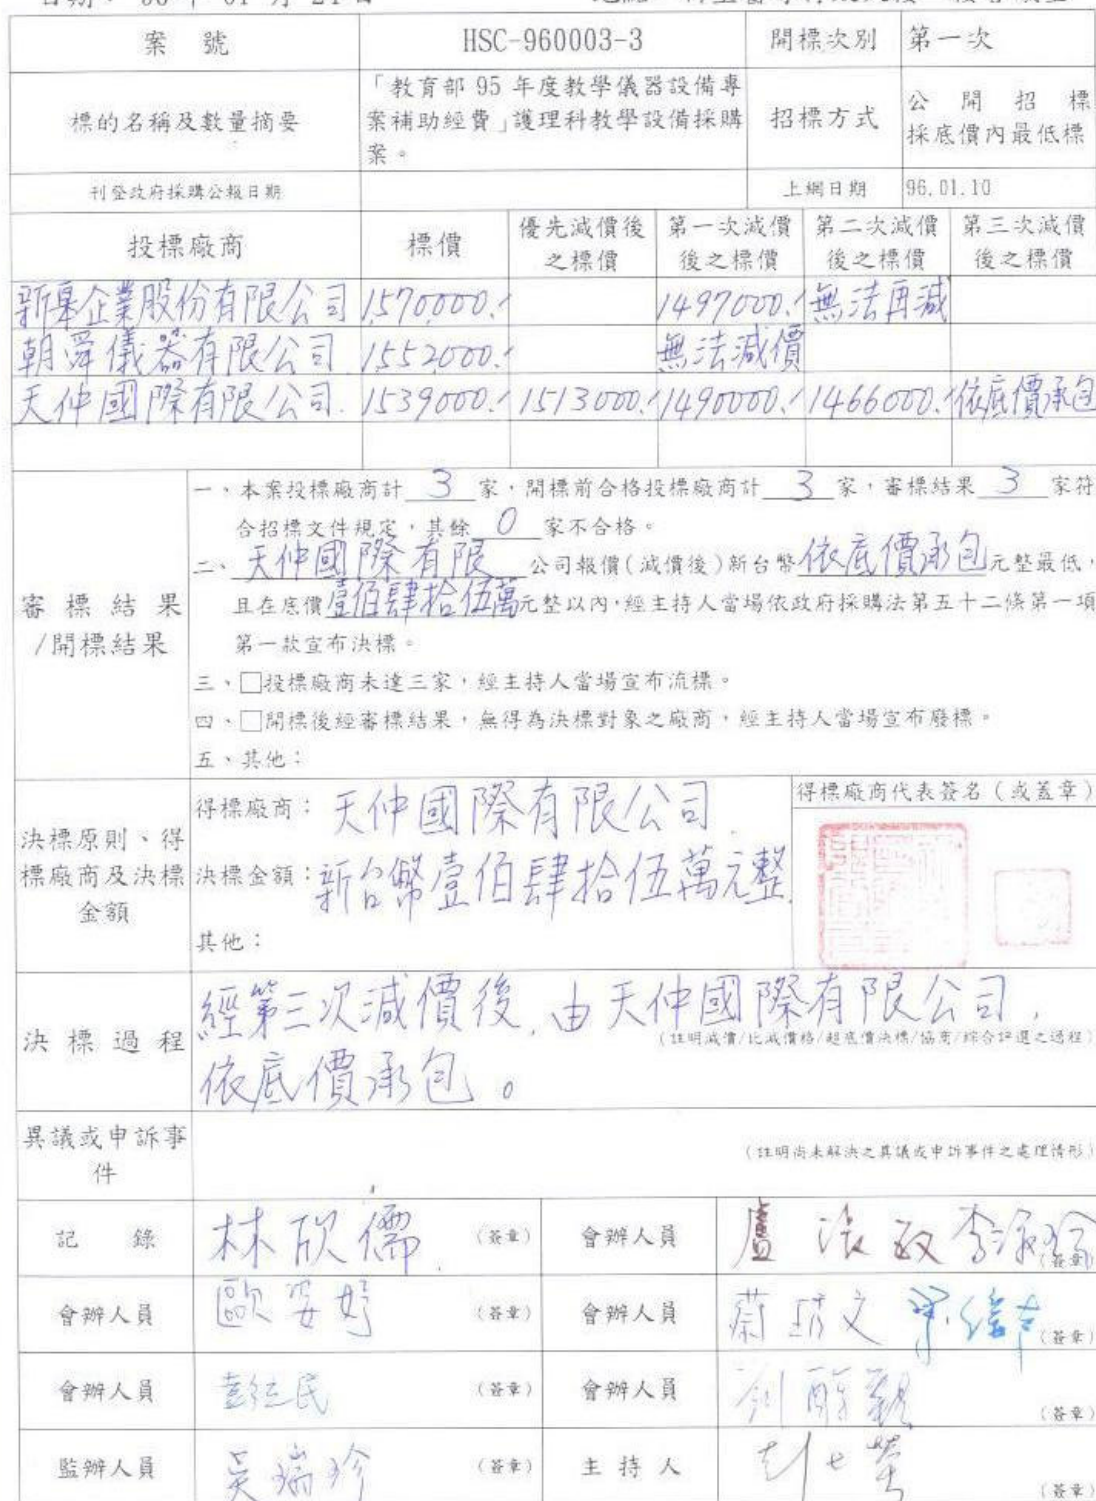 案 號 HSC-960003-3 開標次別 第一次
標的名稱及數量摘要 「教育部 95 年度教學儀器設備專案補助經費」護理科教學設備採購案。 招標方式 公開招標 採底價內最低標
刊登政府採購公報日期 上網日期 96.01.10
投標廠商 標價 優先減價後之標價 第一次減價後之標價 第二次減價後之標價 第三次減價後之標價
企業股份有限公司 1570000. 1497000. 無法再減
朝舜儀器有限公司 1552000. 無法減價
天仲國際有限公司. 1539000. 1513000. 1490000. 1466000. 依底價承包
審標結果/開標結果
一、本案投標廠商計 3 家,開標前合格投標廠商計 3 家,審標結果 3 家符
合招標文件規定,其餘 0 家不合格。
二、天仲國際有限 公司報價(減價後)新台幣依底價承包元整最低,
且在底價壹佰肆拾伍萬元整以內,經主持人當場依政府採購法第五十二條第一項
第一款宣布決標。
三、□投標廠商未達三家,經主持人當場宣布流標。
四、□開標後經審標結果,無得為決標對象之廠商,經主持人當場宣布廢標。
五、其他:
決標原則、得標廠商及決標金額
得標廠商: 天仲國際有限公司. 得標廠商代表簽名(或蓋章)
決標金額: 新台幣壹佰肆拾伍萬元整.
其他:
決標過程 經第三次減價後,由天仲國際有限公司,
(註明減價/比減價格/超底價決標/協商/綜合評選之過程)
依底價承包。
異議或申訴事件 (註明尚未解決之異議或申訴事件之處理情形)
記 錄 林欣儒 (簽章) 會辦人員 (簽章)
會辦人員 歐姿妤 (簽章) 會辦人員 (簽章)
會辦人員 (簽章) 會辦人員 (簽章)
監辦人員 吳瑞珍 (簽章) 主持人 (簽章)